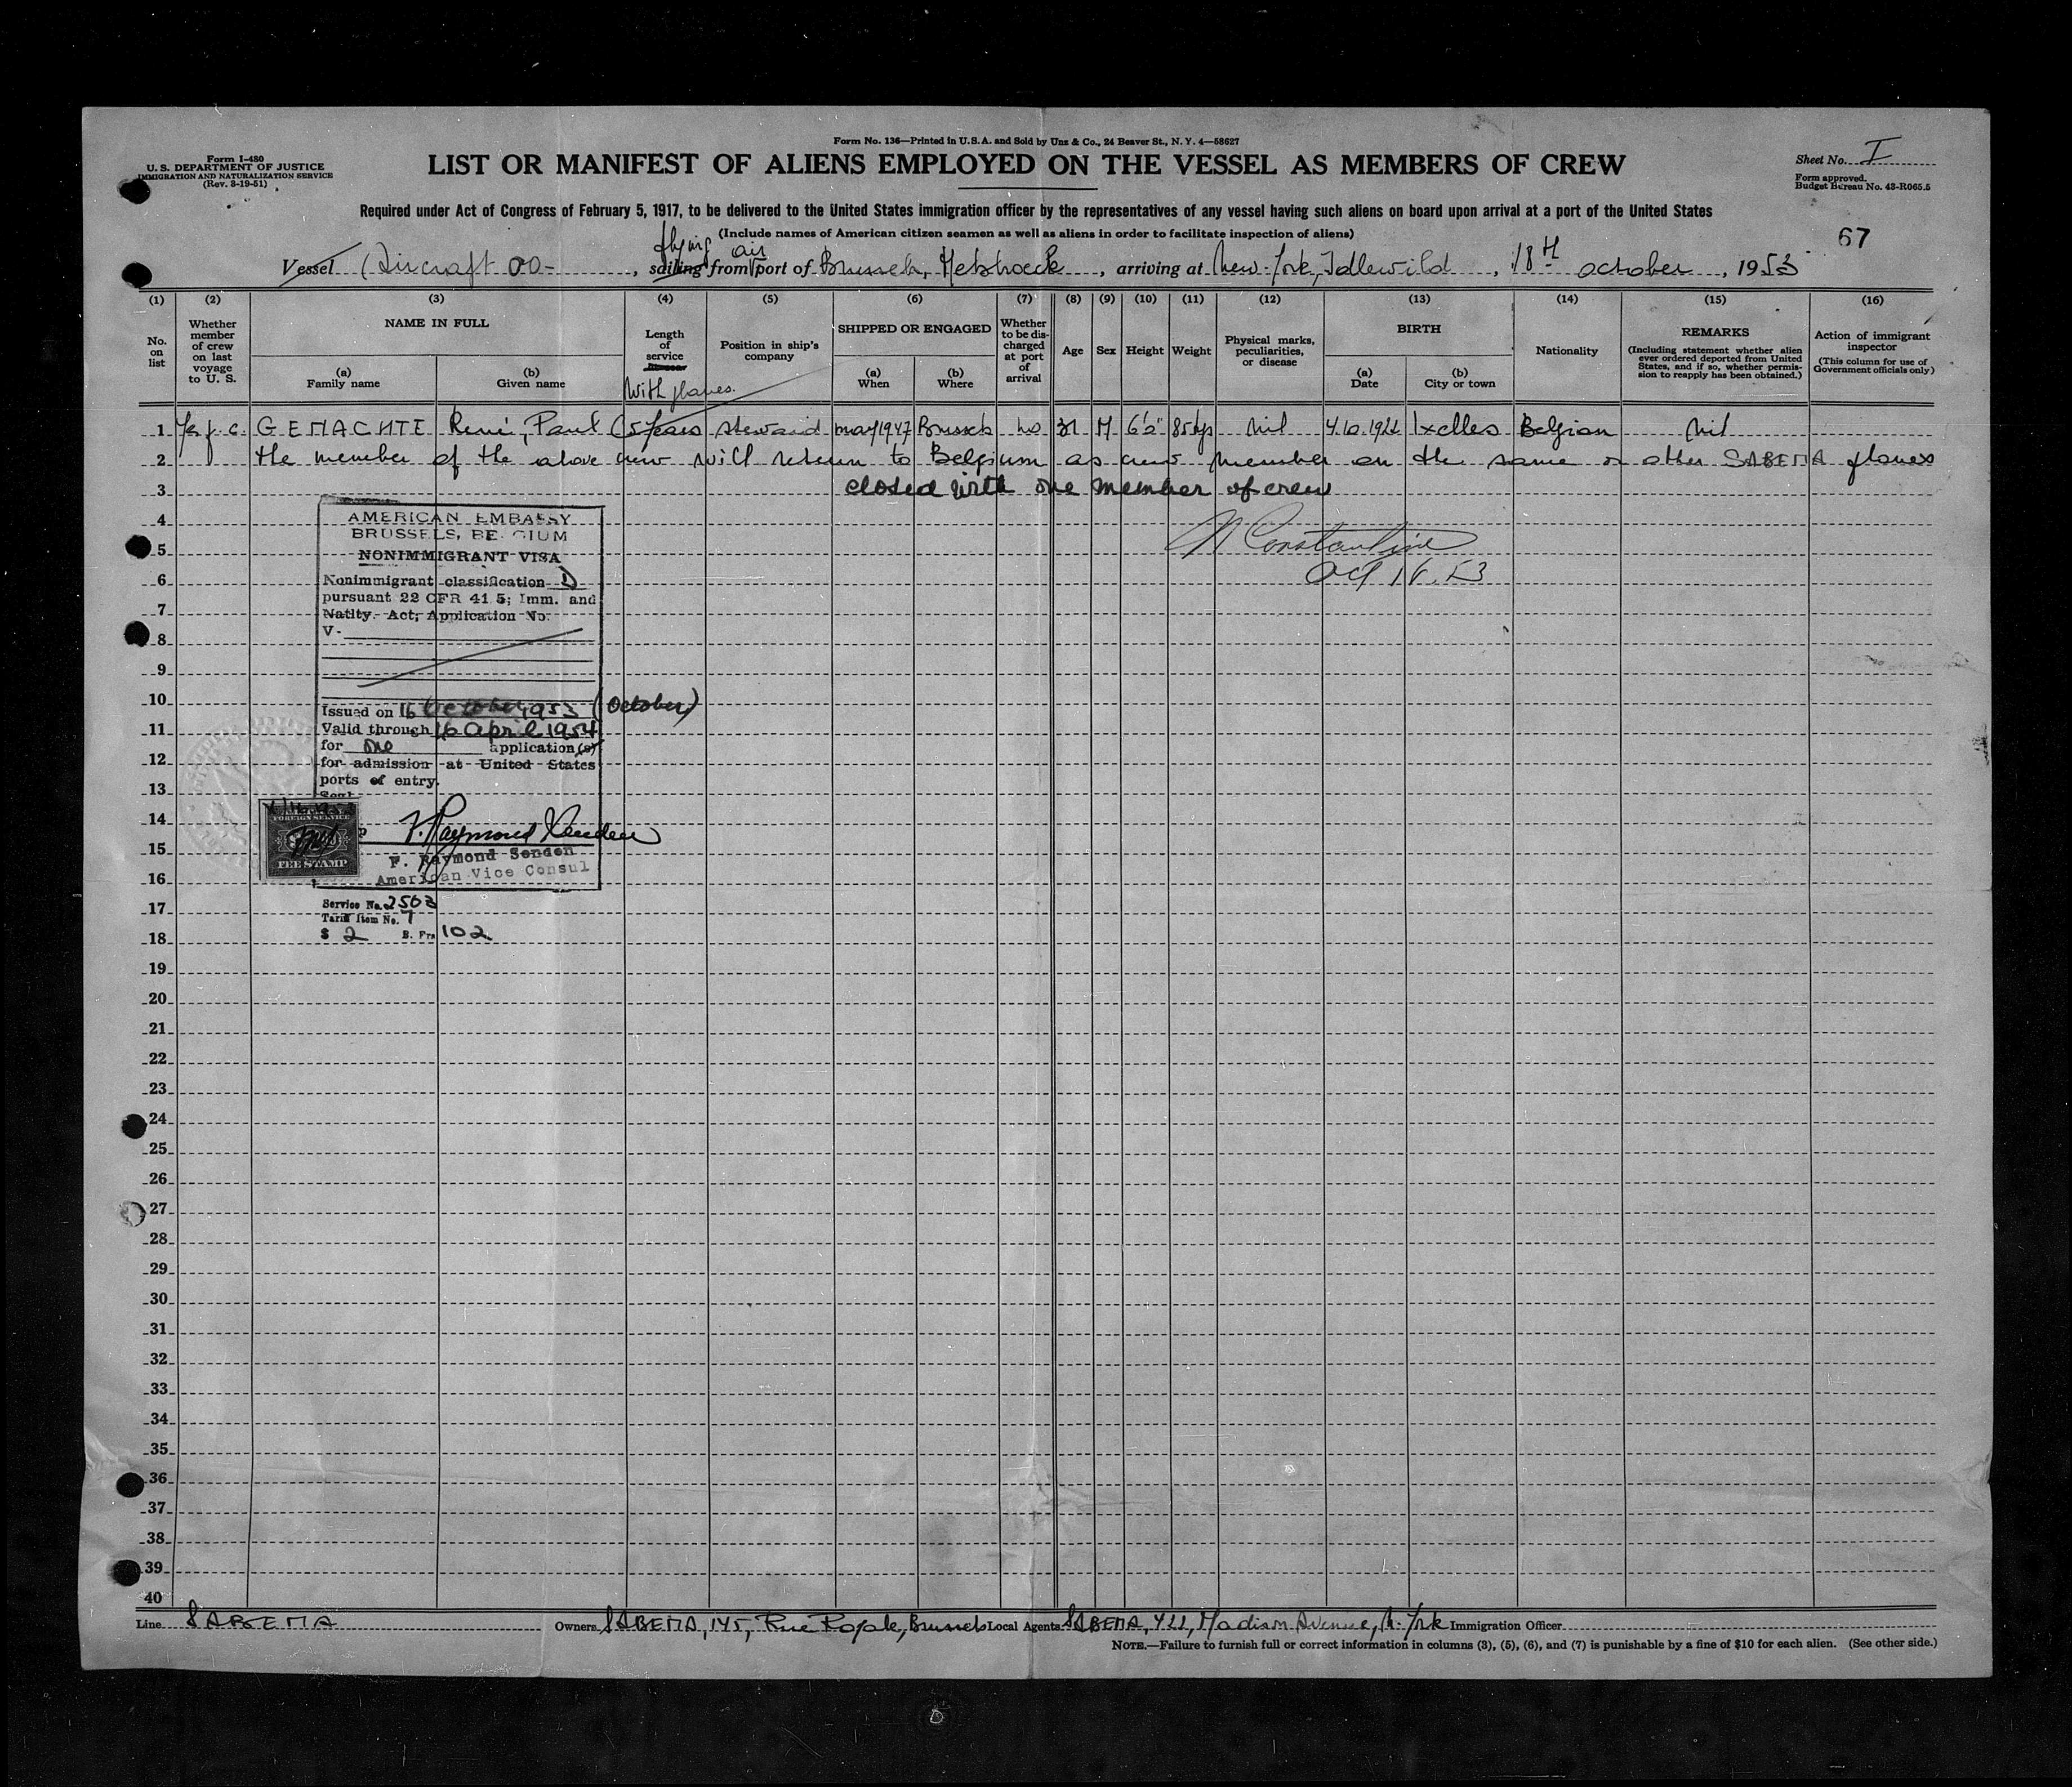 Form No. 136—Printed in U.S.A. and Sold by Unz & Co., 24 Beaver St., N. Y. 4—58627
Form I-480
U. S. DEPARTMENT OF JUSTICE
IMMIGRATION AND NATURALIZATION SERVICE
(Rev. 3-19-51)
LIST OR MANIFEST OF ALIENS EMPLOYED ON THE VESSEL AS MEMBERS OF CREW
Sheet No. I
Form approved.
Budget Bureau No. 43-R065.5
Required under Act of Congress of February 5, 1917, to be delivered to the United States immigration officer by the representatives of any vessel having such aliens on board upon arrival at a port of the United States
(Include names of American citizen seamen as well as aliens in order to facilitate inspection of aliens)
67
flying air
Vessel Aircraft OO- , sailing from port of Brussels, Melsbroeck , arriving at New-York, Idlewild , 18th october , 1953
(1) (2) (3) (4) (5) (6) (7) (8) (9) (10) (11) (12) (13) (14) (15) (16)
No. on list
Whether member of crew on last voyage to U. S.
NAME IN FULL
(a) Family name
(b) Given name
Length of service
With planes.
Position in ship's company
SHIPPED OR ENGAGED
(a) When
(b) Where
Whether to be discharged at port of arrival
Age
Sex
Height
Weight
Physical marks, peculiarities, or disease
BIRTH
(a) Date
(b) City or town
Nationality
REMARKS
(Including statement whether alien ever ordered deported from United States, and if so, whether permission to reapply has been obtained.)
Action of immigrant inspector
(This column for use of Government officials only)
1 GEMACHTE René, Paul 5 years steward may 1947 Brussels no 31 M 6'2" 85 kgs Nil 4.10.1922 Ixelles Belgian Nil
2 the member of the above crew will return to Belgium as crew member on the same or other SABENA planes
3 closed with one member of crew
4
AMERICAN EMBASSY
BRUSSELS, BELGIUM
N Constantine
5
NONIMMIGRANT VISA
Oct 16. 53
6
Nonimmigrant classification D
pursuant 22 CFR 41.5; Imm. and
7
Natlty. Act; Application No.
8
V-
9
10
Issued on 16 October 1953 (October)
11
Valid through 16 April 1954
for one application(s)
12
for admission at United States
ports of entry.
13
Seal
14
FOREIGN SERVICE
FEE STAMP
F. Raymond Senden
15
F. Raymond Senden
16
American Vice Consul
17
Service No. 2503
Tariff Item No. 7
18
$ 2 B. Frs 102
19
20
21
22
23
24
25
26
27
28
29
30
31
32
33
34
35
36
37
38
39
40
Line SABENA Owners SABENA, 145, Rue Royale, Brussels Local Agents SABENA, 422, Madison Avenue, N. York Immigration Officer
NOTE.—Failure to furnish full or correct information in columns (3), (5), (6), and (7) is punishable by a fine of $10 for each alien. (See other side.)